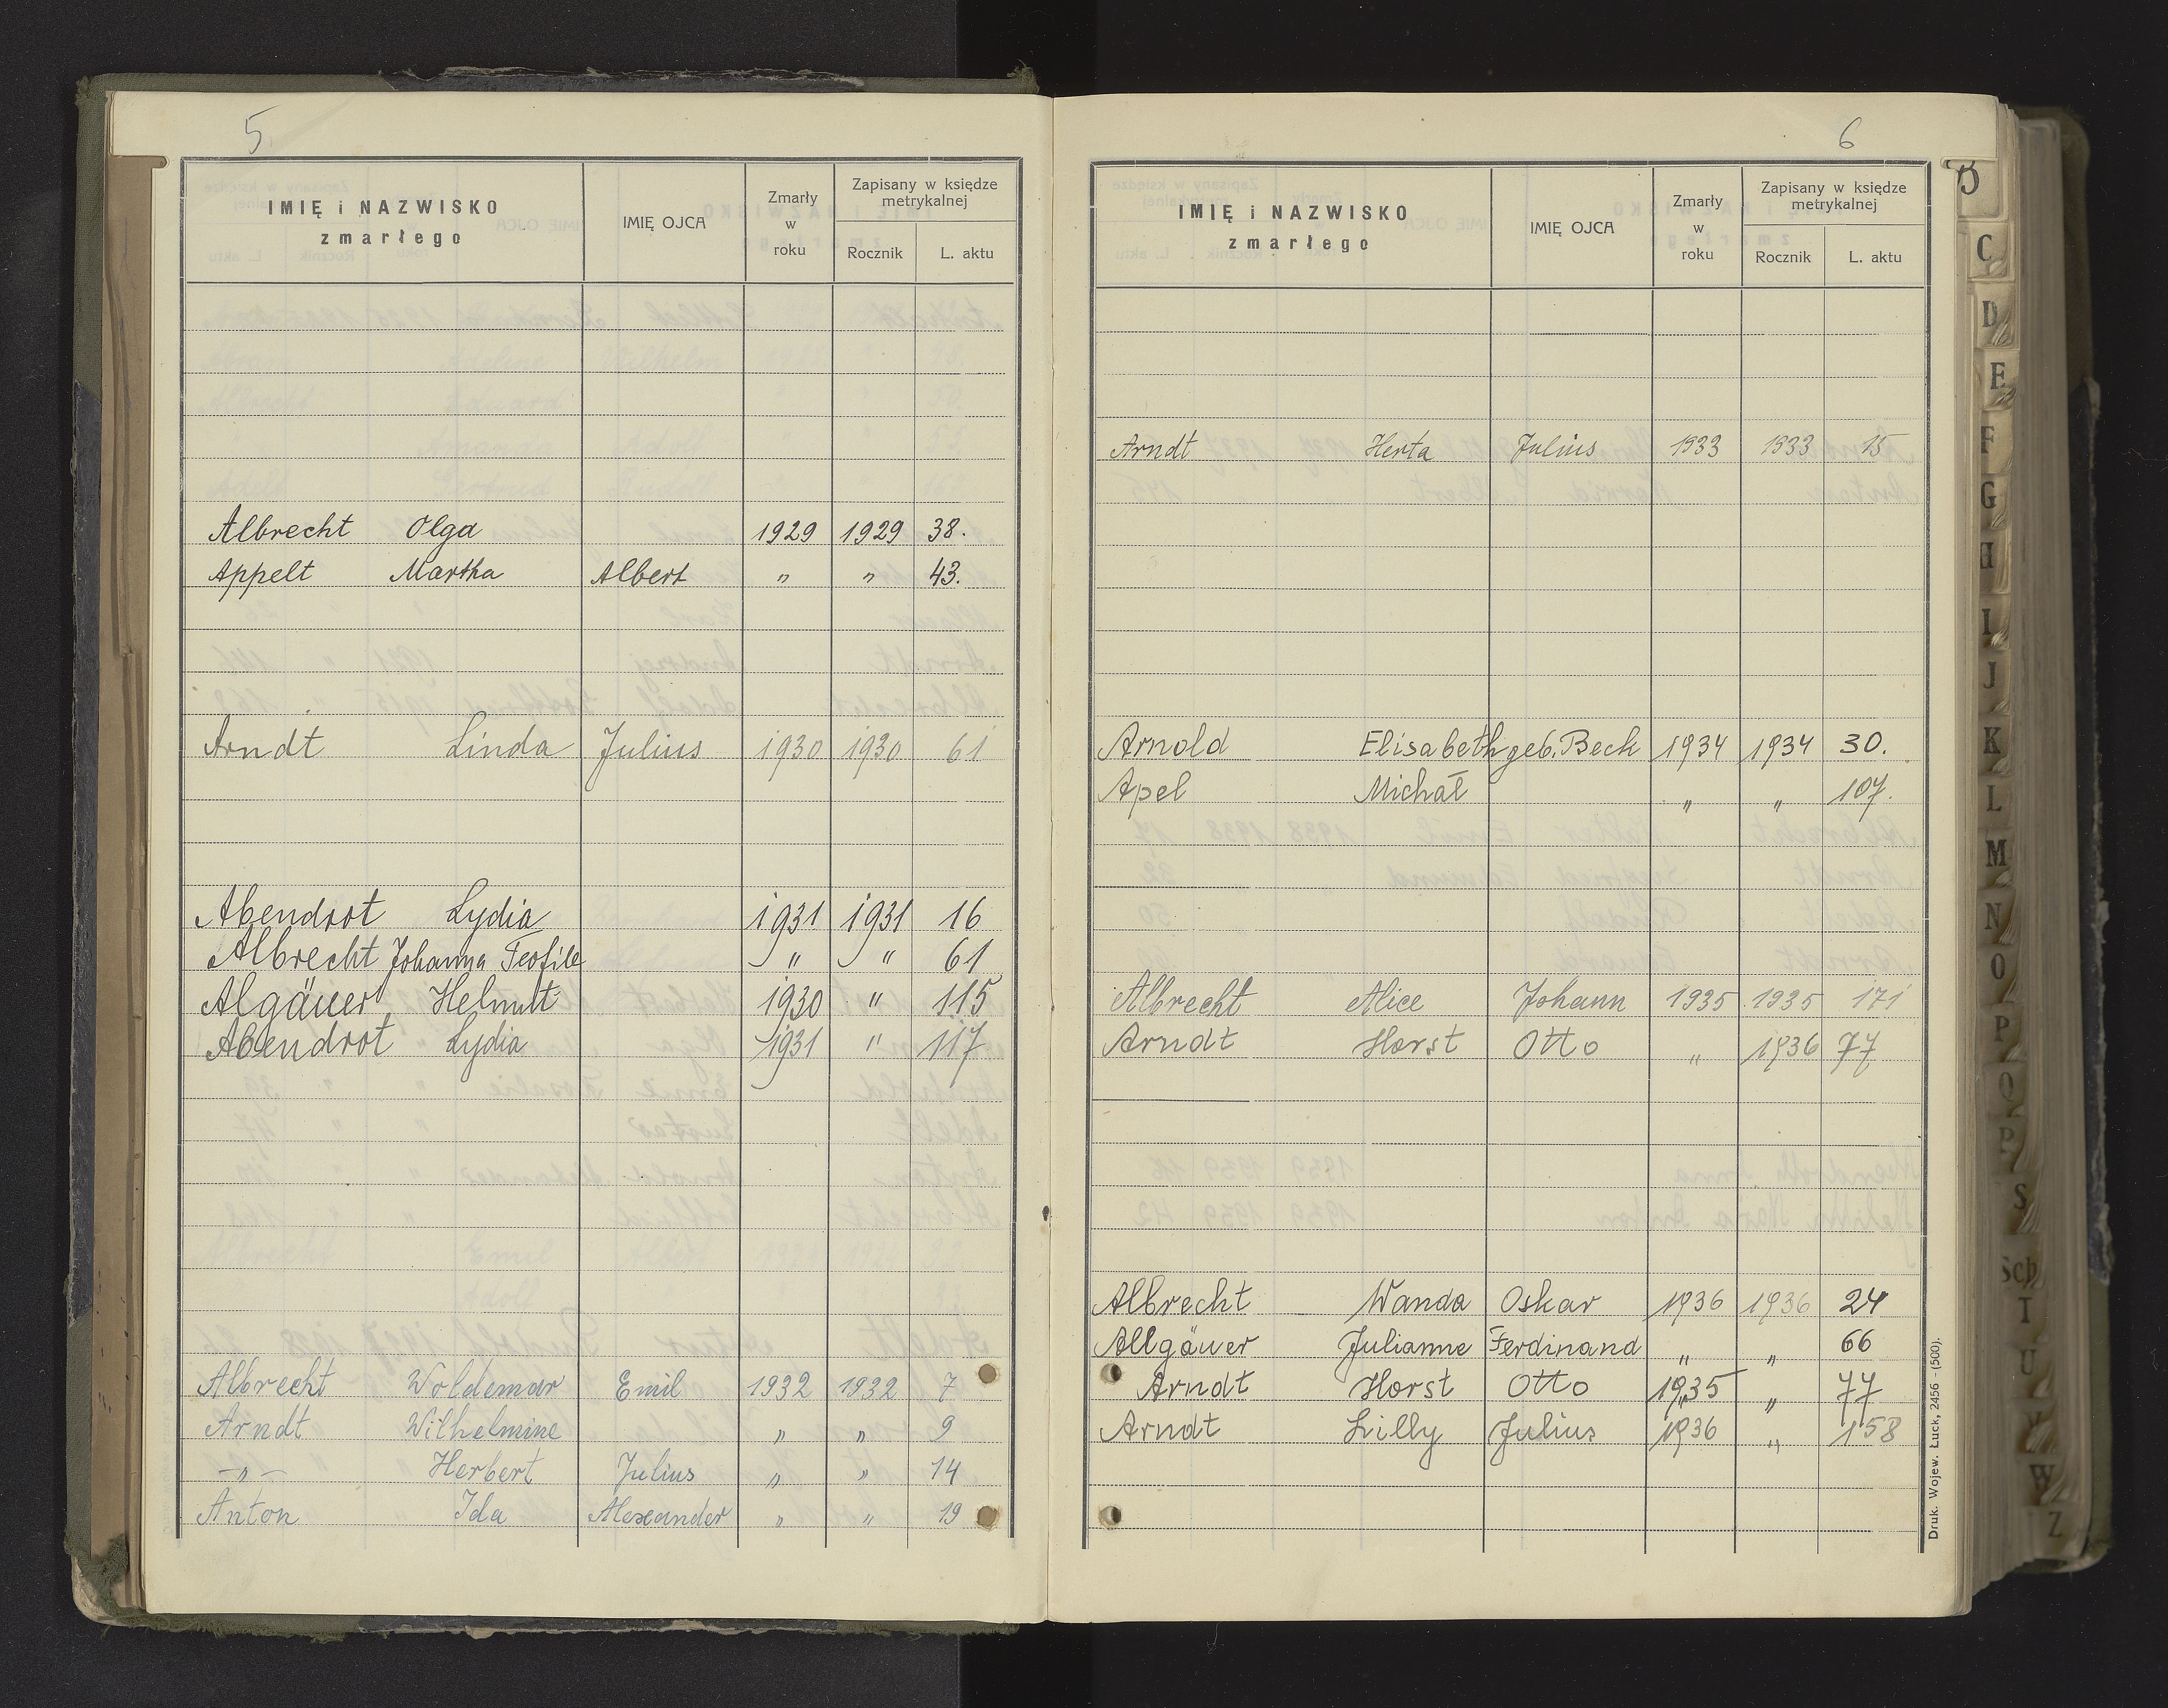 5
IMIĘ i NAZWISKO zmarłego
IMIĘ OJCA
Zmarły w roku
Zapisany w księdze metrykalnej
Rocznik
L. aktu
Albrecht Olga 1929 1929 38.
Appelt Martha Albert " " 43.
Arndt Linda Julius 1930 1930 61
Abendrot Lydia 1931 1931 16
Albrecht Johanna Teofile " " 61
Algäuer Helmut 1930 " 115
Abendrot Lydia 1931 " 117
Albrecht Woldemar Emil 1932 1932 7
Arndt Wilhelmine " " 9
-"- Herbert Julius " " 14
Anton Ida Alexander " " 19
6
IMIĘ i NAZWISKO zmarłego
IMIĘ OJCA
Zmarły w roku
Zapisany w księdze metrykalnej
Rocznik
L. aktu
Arndt Herta Julius 1933 1933 15
Arnold Elisabeth geb. Beck 1934 1934 30.
Apel Michał " " 107.
Albrecht Alice Johann 1935 1935 171
Arndt Horst Otto " 1936 77
Albrecht Wanda Oskar 1936 1936 24
Allgäuer Julianne Ferdinand " " 66
Arndt Horst Otto 1935 " 77
Arndt Lilly Julius 1936 " 158
Druk. Wojew. Łuck, 2456 - (500).
B
C
D
E
F
G
H
I
J
K
L
M
N
O
P
Q
R
S
Sch
T
U
V
W
Z